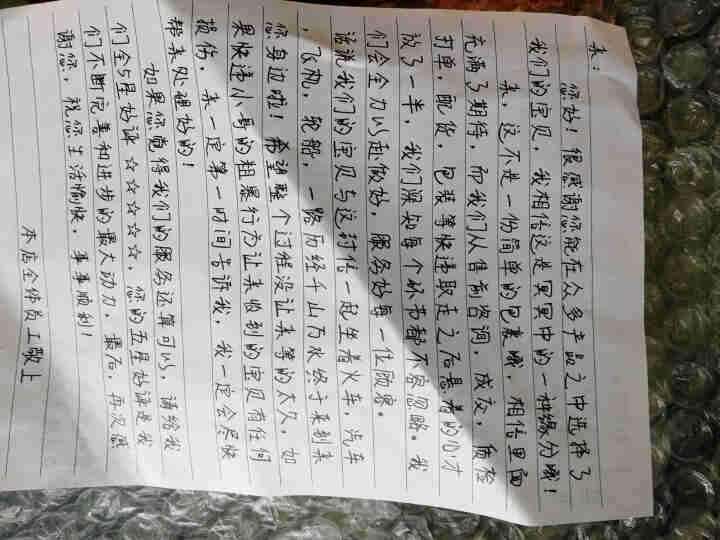 亲:
您好!很感谢您能在众多产品之中选择了
我们的宝贝,我相信这是冥冥中的一种缘分哦!
亲,这不是一份简单的包裹哦,相信里面
充满了期待,而我们从售前咨询,成交,质检
打单,配货,包装等快递取走之后悬着的心才
放了一半,我们深知每个环节都不容忽略。我
们会全力以赴做好,服务好每一位顾客。
话说我们的宝贝与这封信一起坐着火车,汽车
,飞机,轮船,一路历经千山万水终于来到亲
您身边啦!希望整个过程没让亲等的太久,如
果快递小哥的粗暴行为让亲收到的宝贝有任何
损伤,亲一定第一时间告诉我,我一定会尽快
帮亲处理好的!
如果您觉得我们的服务还算可以,请给我
们全5星好评☆☆☆☆☆,您的五星好评是我
们不断完善和进步的最大动力,最后,再次感
谢您,祝您生活愉快,事事顺利!
本店全体员工敬上